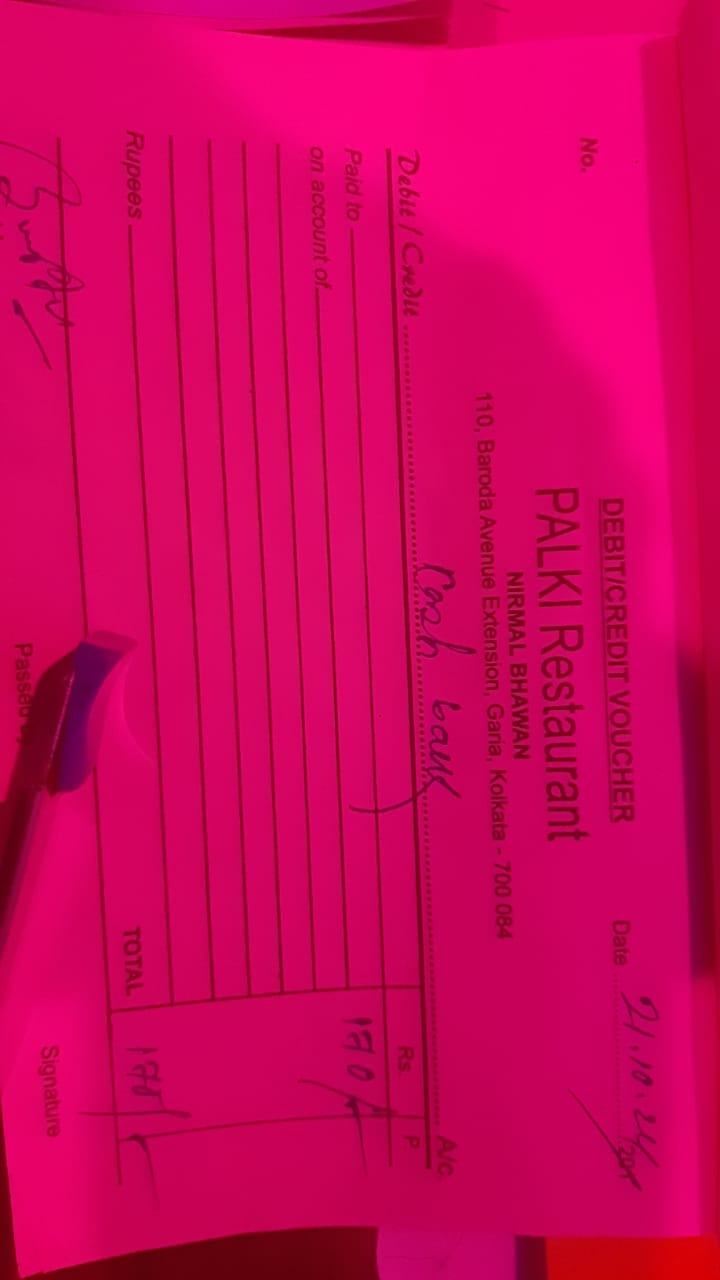 DEBIT/CREDIT VOUCHER
No.
Date 21.10.24 201
PALKI Restaurant
NIRMAL BHAWAN
110, Baroda Avenue Extension, Garia, Kolkata - 700 084
Debit / Credit Cash A/c.
Rs. P.
Paid to 170/-
on account of
Rupees TOTAL 170/-
Passed Signature